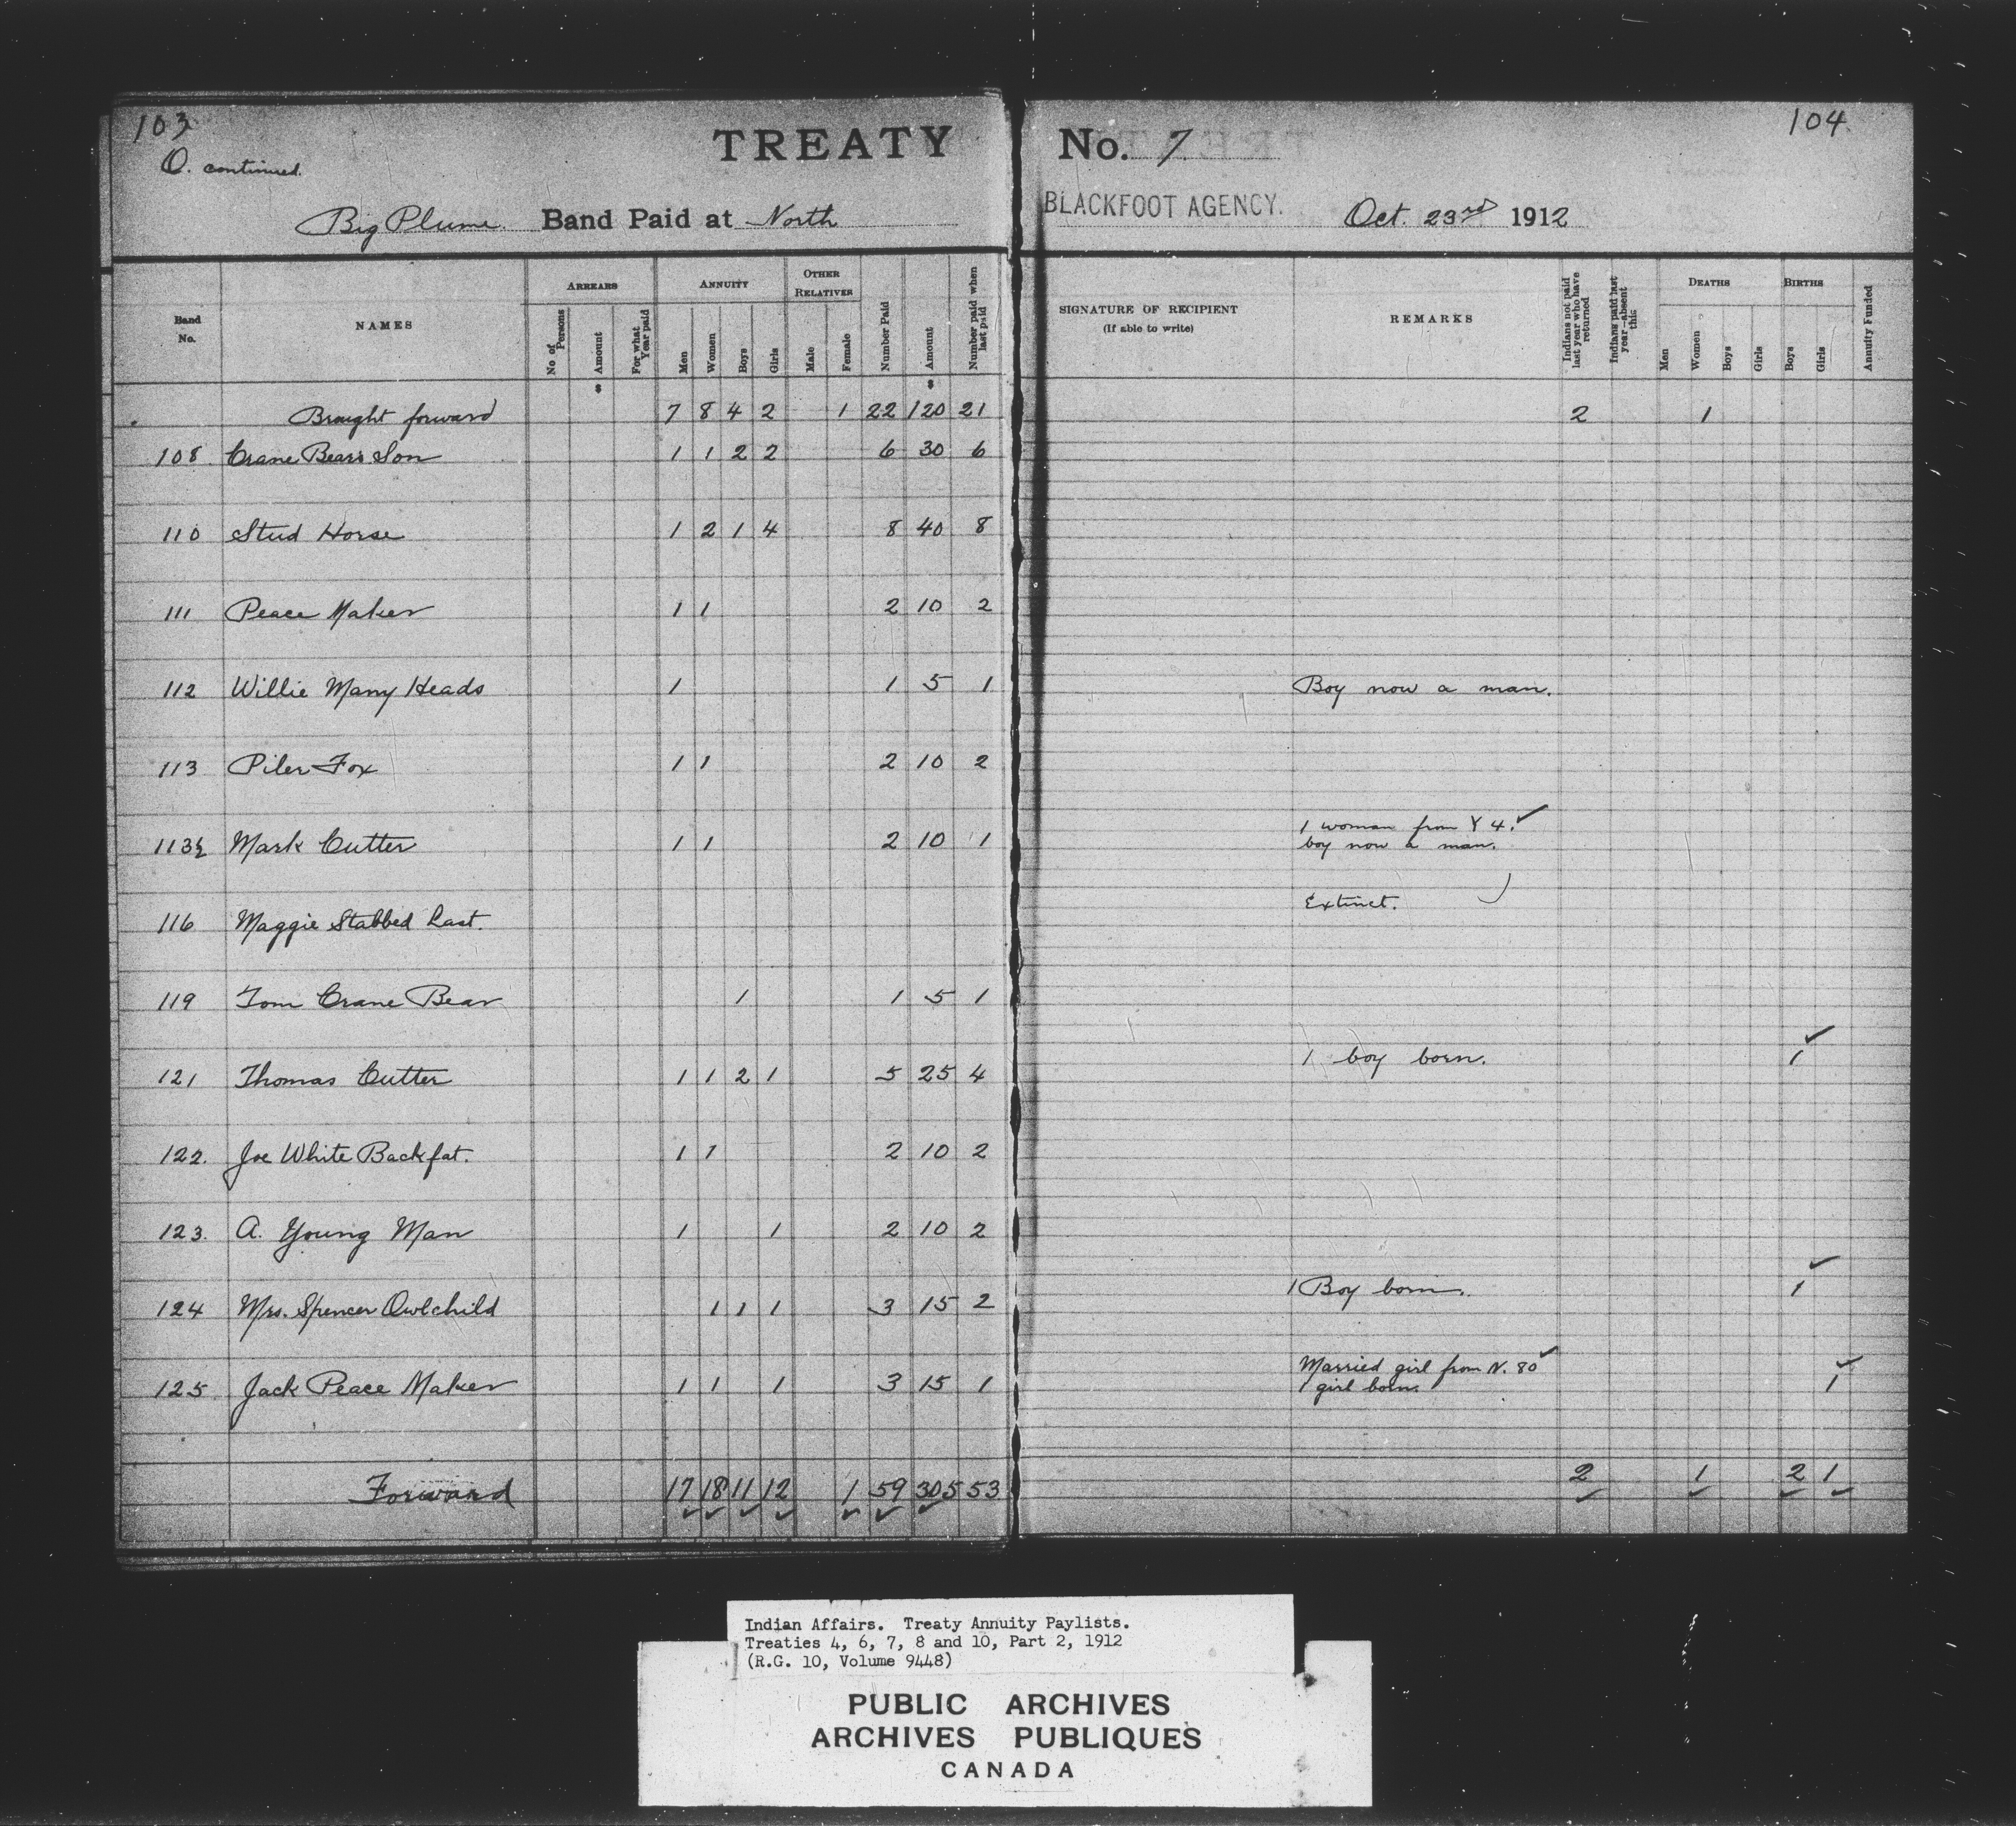 103
O. continued.
TREATY No. 7.
104
Big Plume. Band Paid at North
BLACKFOOT AGENCY. Oct. 23rd 1912
Band No.
NAMES
ARREARS
No of Persons
Amount
For what Year paid
ANNUITY
Men
Women
Boys
Girls
OTHER RELATIVER
Male
Female
Number Paid
Amount
Number paid when last paid
SIGNATURE OF RECIPIENT
(If able to write)
REMARKS
Indians not paid last year who have returned
Indians paid last year—absent this
DEATHS
Men
Women
Boys
Girls
BIRTHS
Boys
Girls
Annuity Funded
$ $
Brought forward 7 8 4 2 1 22 120 21 2 1
108 Crane Bear's Son 1 1 2 2 6 30 6
110 Stud Horse 1 2 1 4 8 40 8
111 Peace Maker 1 1 2 10 2
112 Willie Many Heads 1 1 5 1 Boy now a man.
113 Piler Fox 1 1 2 10 2
113½ Mark Cutter 1 1 2 10 1 1 woman from Y 4. ✓
boy now a man.
116 Maggie Stabbed Last. Extinct.
119 Tom Crane Bear 1 1 5 1
121 Thomas Cutter 1 1 2 1 5 25 4 1 boy born. 1 ✓
122. Joe White Backfat. 1 1 2 10 2
123. A. Young Man 1 1 2 10 2
124 Mrs. Spencer Owlchild 1 1 1 3 15 2 1 Boy born. 1 ✓
125 Jack Peace Maker 1 1 1 3 15 1 Married girl from N. 80 ✓
1 girl born. 1 ✓
Forward 17 18 11 12 1 59 305 53 2 1 2 1
Indian Affairs. Treaty Annuity Paylists.
Treaties 4, 6, 7, 8 and 10, Part 2, 1912
(R.G. 10, Volume 9448)
PUBLIC ARCHIVES
ARCHIVES PUBLIQUES
CANADA